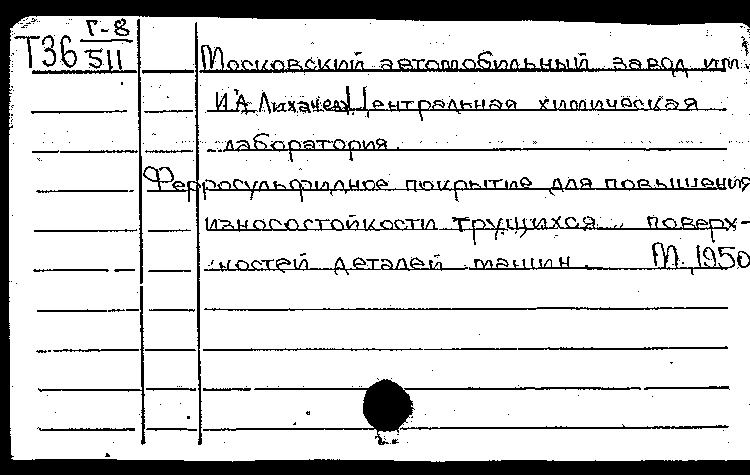 Т36 Г-8
511
Московский автомобильный завод им.
И.А. Лихачева Центральная химическая
лаборатория.
Ферросульфидное покрытие для повышения
износостойкости трущихся поверх-
ностей деталей машин. М., 1950